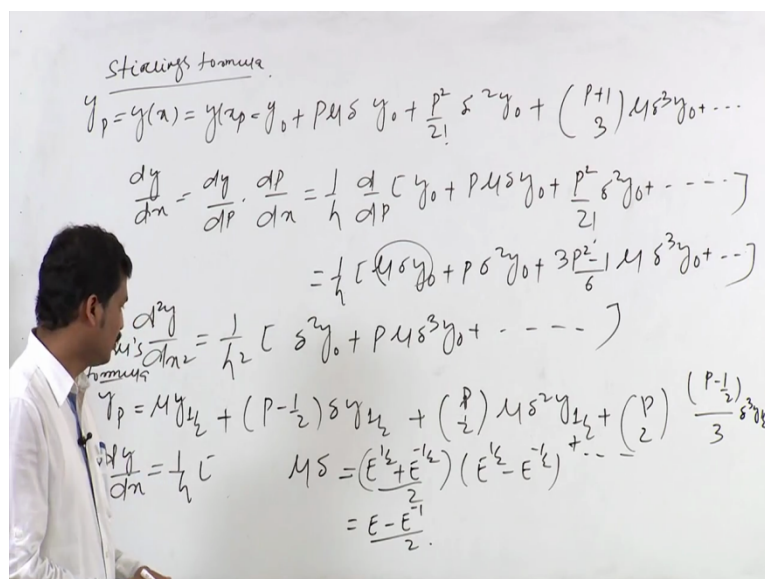 Stirlings formula.
y_p = y(x) = y(x_p = y_0 + pμδ y_0 + p²/2! δ²y_0 + (p+1 3) μδ³y_0 + ...
dy/dx = dy/dp · dp/dx = 1/h d/dp [ y_0 + pμδy_0 + p²/2! δ²y_0 + - - - - - ]
= 1/h [ μδy_0 + pδ²y_0 + 3p²-1/6 μδ³y_0 + -- ]
d²y/dx² = 1/h² [ δ²y_0 + pμδ³y_0 + - - - - - ]
l's
formula
y_p = μy_1/2 + (p-1/2) δy_1/2 + (p 2) μδ²y_1/2 + (p 2) (p-1/2)/3 δ³y_1/2
+ - - -
dy/dx = 1/h [ μδ = (E^1/2 + E^-1/2 / 2) (E^1/2 - E^-1/2)
= E - E^-1 / 2.